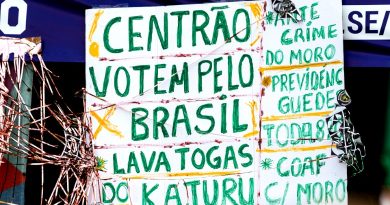 CENTRÃO
VOTEM PELO
BRASIL
LAVA TOGAS
DO KATURU
*ANTE
CRIME
DO MORO
*PREVIDÊNC
GUEDE
TODA
*COAF
C/ MORO
.SE/